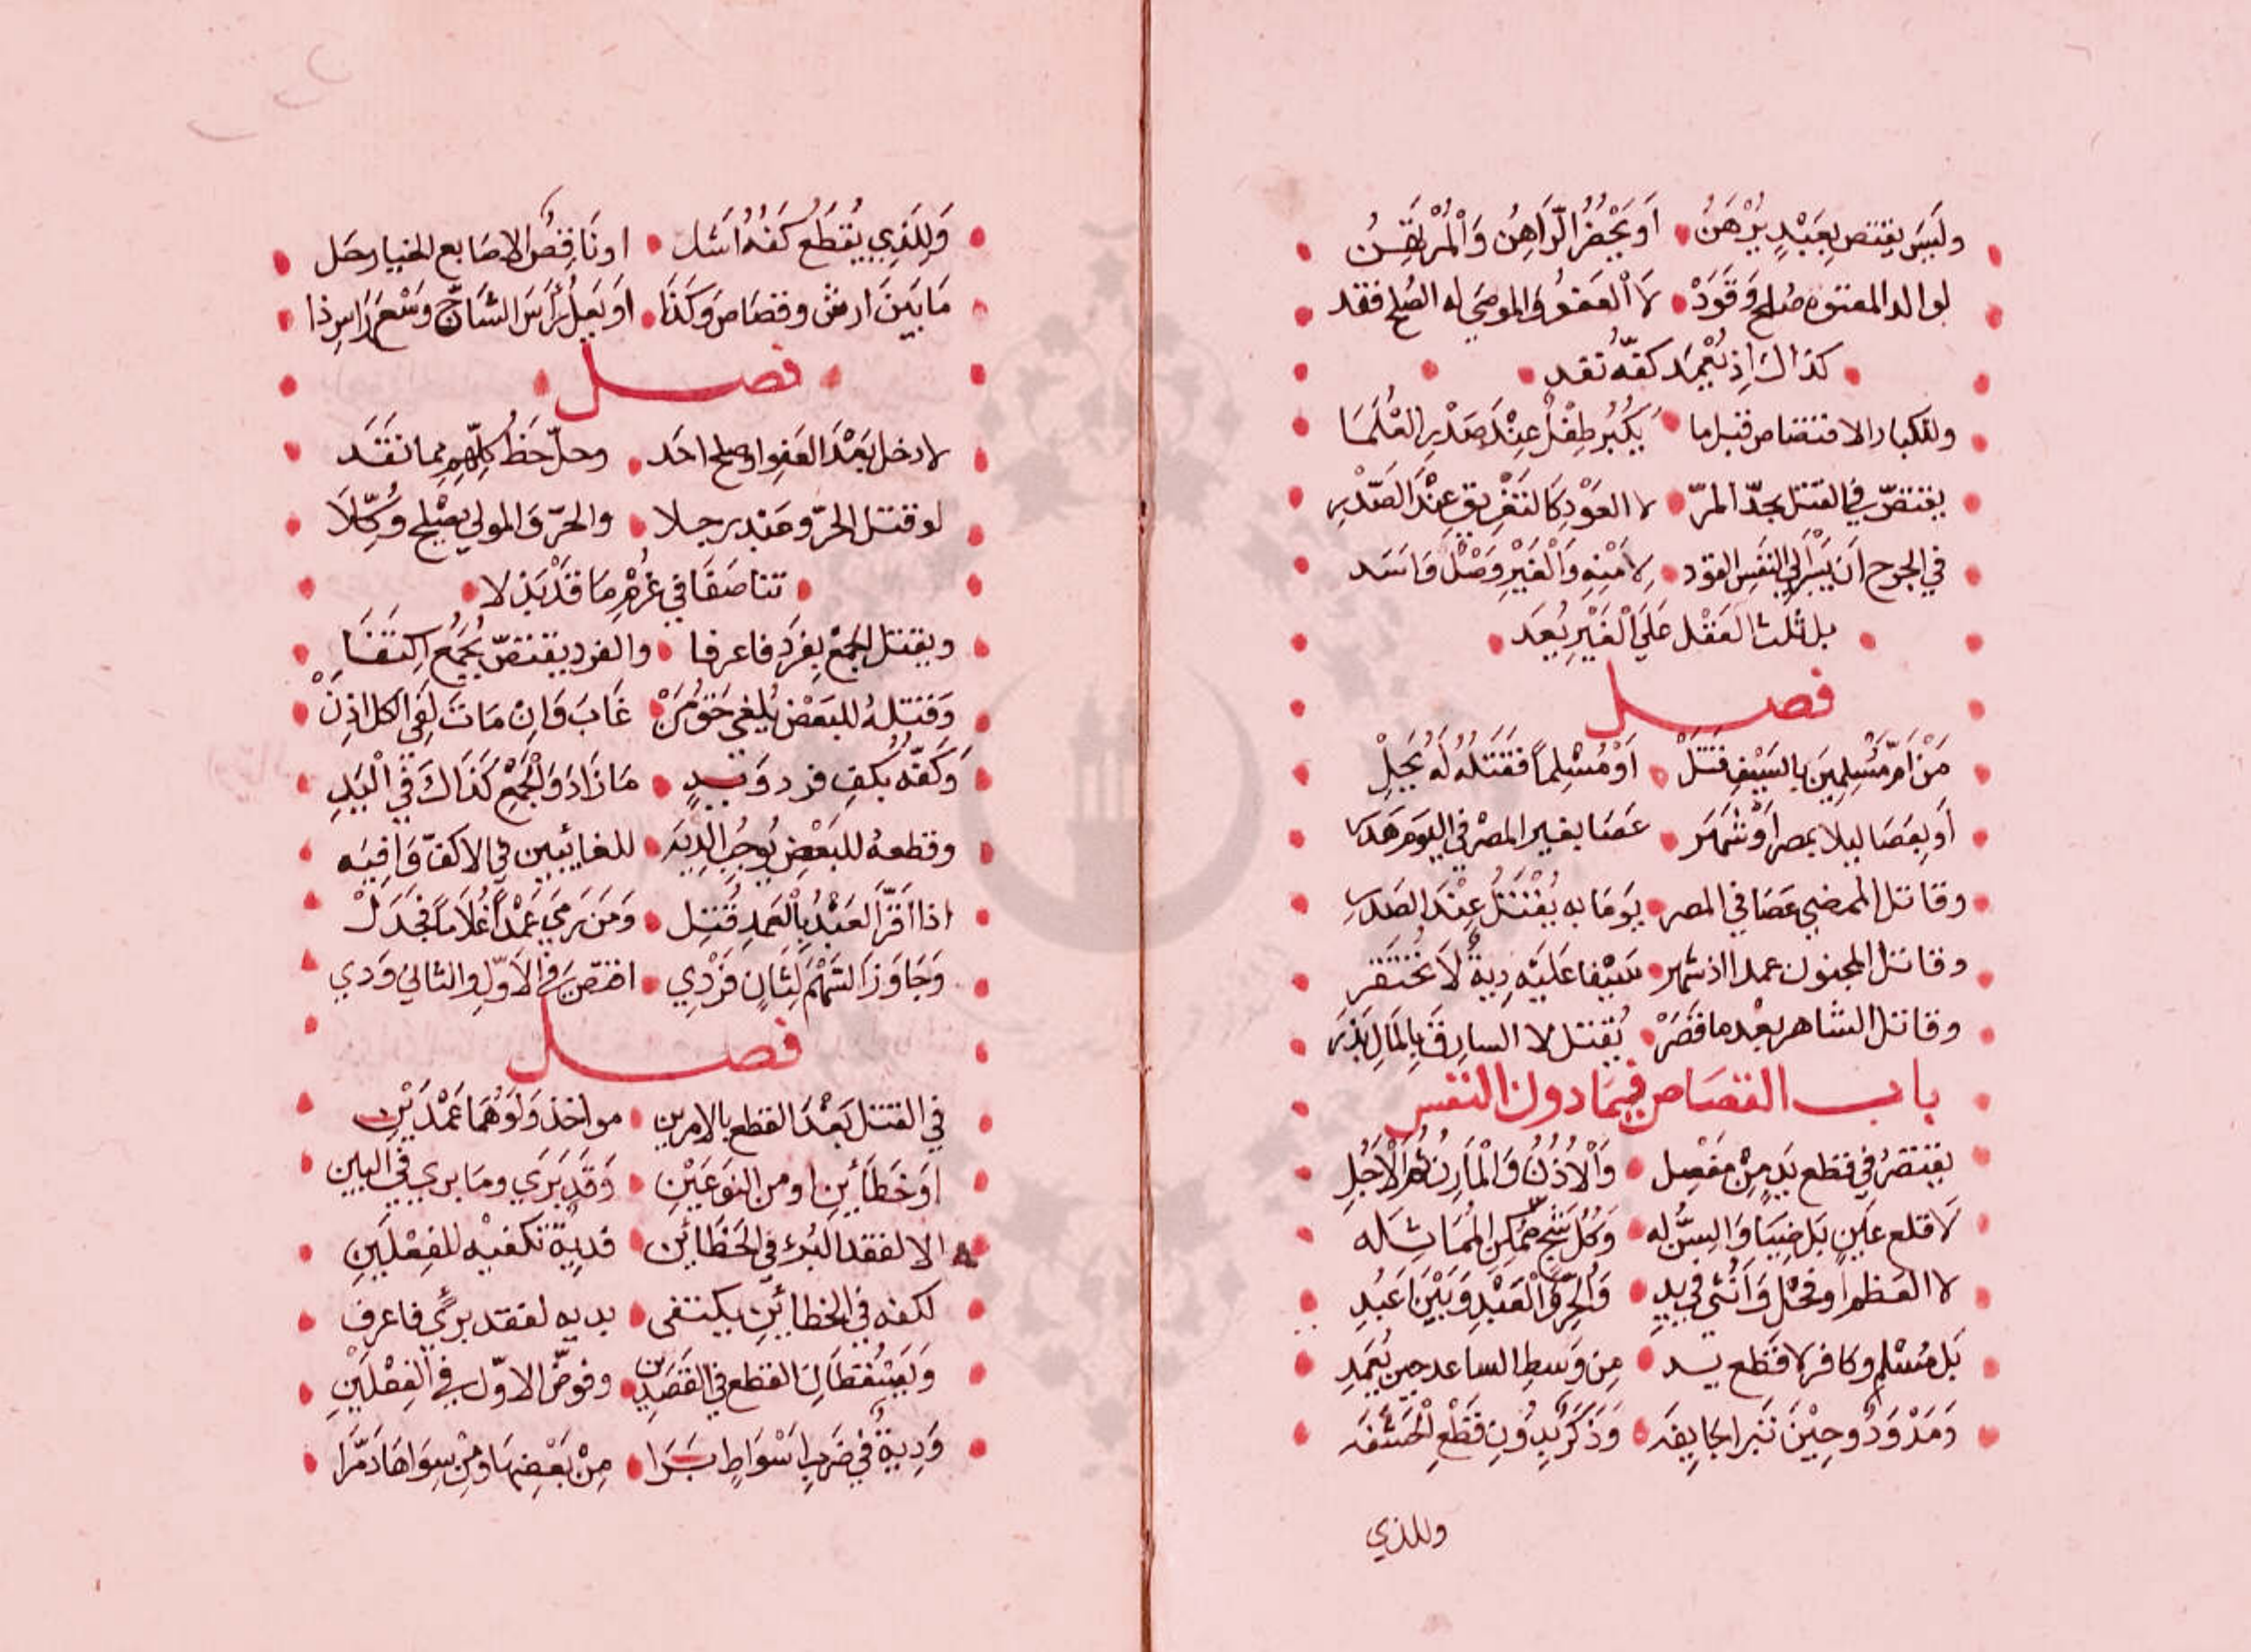 وليس يقتص بعبد يرهن أو يحضر الراهن والمرتهن
لوالد المعتوه صلح وقود لا العفو والموصي له الصلح فقد
كذاك إذ يعمد كفه تقد
وللكبار الاقتصاص قبل ما يكبر طفل عند صدر العلما
يقتص في القتل بحد المر لا العود كالتغريق عند الصدر
في الجرح أن يسر الي النفس القود لا منه والغير وصل واسد
بل ثلث العقل علي الغير يعد
فصل
من أم مسلمين بالسيف قتل أو مسلما فقتله له يحل
أو بعصا ليلا بمصر أو شهر عصا بغير المصر في اليوم هدر
وقاتل الممضي عصا في المصر يوما به يقتل عند الصدر
وقاتل المجنون عمدا اذ شهر سيفا عليه دية لا تحتقر
وقاتل الشاهر بعد ما قصر يقتل لا السارق بالمال بذر
باب القصاص فيما دون النفس
يقتص في قطع يد من مفصل والاذن والمارن ثم الارجل
لا قلع عين بل ضيا والسن له وكل شج ممكن المماثله
لا العظم او فحل وأنثى في يد والحر والعبد وبين اعبد
بل مسلم وكافر لا قطع يد من وسط الساعد حين يعمد
ومدود وحين تبرا جايفه وذكر بدون قطع الحشفه
وللذي
وللذي يقطع كفه اشل اوناقص الاصابع الخيار حل
ما بين ارش وقصاص وكذا او يعل راس الشاج وسع راس ذا
فصل
لا دخل بعد العفو او صلح احد وحل حظ كلهم مما نقد
لو قتل الحر وعبد رجلا والحر والمولي بصلح وكلا
تناصفا في غرم ما قد بذلا
ويقتل الجمع بفرد فاعرفا والفرد يقتص بجمع اكتفا
وقتله للبعض يلغي حق من غاب وان مات لفي الكل اذن
وكفه بكف فرد ويد ما زاد والجمع كذاك في اليد
وقطعه للبعض يوجب الديه للغايبين في الاكف وافيه
اذا اقر العبد بالعمد قتل ومن رمي عمدا غلاما فجدل
وجاوز السهم لثان فردي اقتص في الاول والثاني ودي
فصل
في القتل بعد القطع بالامرين مواخذ ولو هما عمدين
او خطأين او من النوعين وقد بري وما بري في البين
الا لفقد البرء في الخطائين فدية تكفيه للفعلين
لكفه في الخطائين يكتفى بديه لفقد برئ فاعرف
ويسقطان القطع في القصدين وفوض الاول في الفصلين
ودية في ضرب اسواط برا من بعضها ومن سواها دمرا